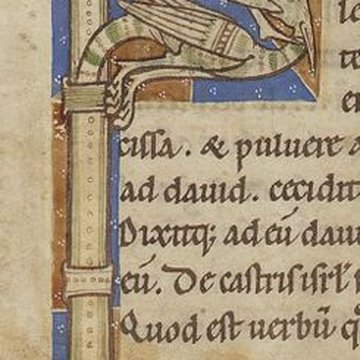 te
cissa. & puluere a
ad dauid. cecidit
Dixitq; ad eū daui
eū. De castris isrl̄
Quod est uerbū q